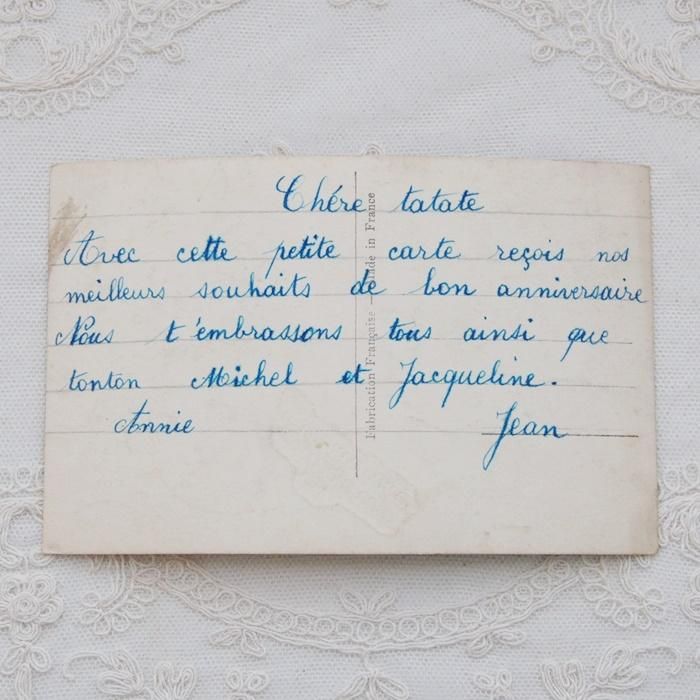 Chére tatate
Avec cette petite carte reçois nos
meilleurs souhaits de bon anniversaire
Nous t'embrassons tous ainsi que
tonton Michel et Jacqueline.
Annie Jean
Fabrication Française — Made in France